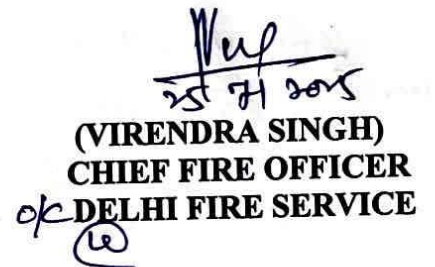 (VIRENDRA SINGH)
CHIEF FIRE OFFICER
o/c DELHI FIRE SERVICE